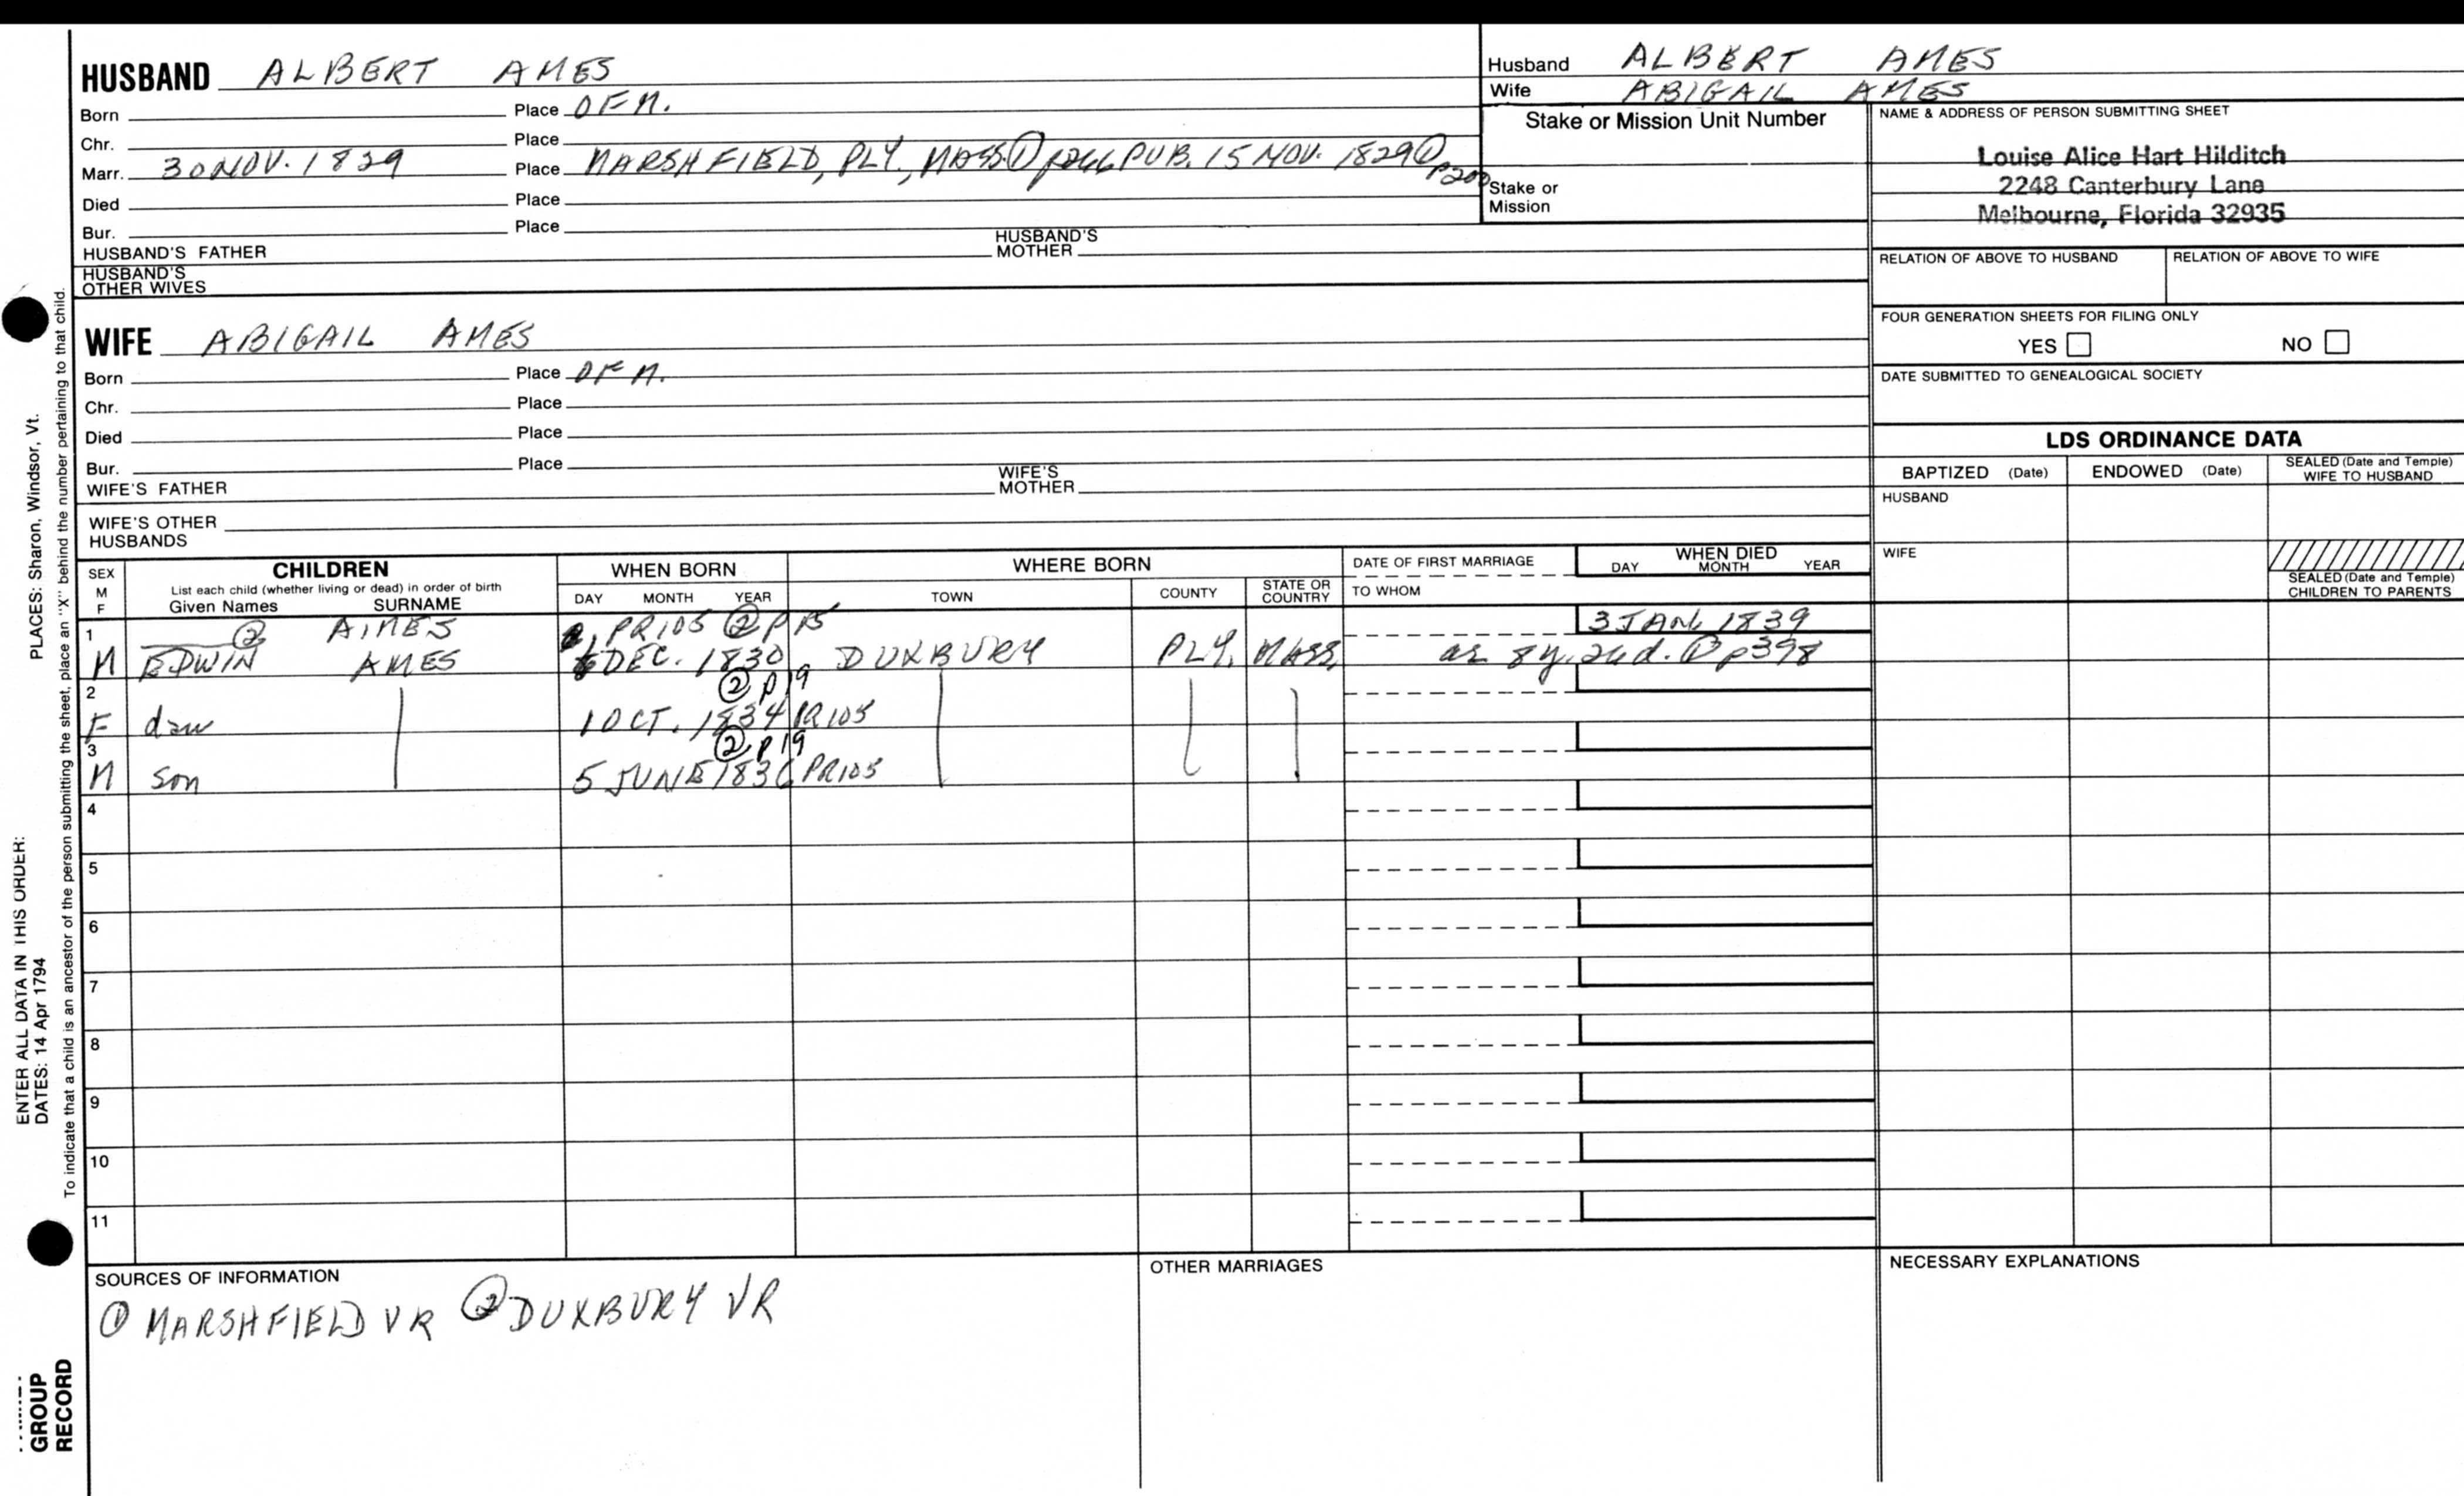 HUSBAND ALBERT AMES
Born Place OF M.
Chr. Place
Marr. 30 NOV. 1829 Place MARSHFIELD, PLY., MASS. ① p266 PUB. 15 NOV. 1829 ① p200
Died Place
Bur. Place
HUSBAND'S FATHER HUSBAND'S MOTHER
HUSBAND'S OTHER WIVES
Husband ALBERT AMES
Wife ABIGAIL AMES
Stake or Mission Unit Number
Stake or Mission
NAME & ADDRESS OF PERSON SUBMITTING SHEET
Louise Alice Hart Hilditch
2248 Canterbury Lane
Melbourne, Florida 32935
RELATION OF ABOVE TO HUSBAND RELATION OF ABOVE TO WIFE
FOUR GENERATION SHEETS FOR FILING ONLY
YES NO
DATE SUBMITTED TO GENEALOGICAL SOCIETY
WIFE ABIGAIL AMES
Born Place OF M.
Chr. Place
Died Place
Bur. Place
WIFE'S FATHER WIFE'S MOTHER
WIFE'S OTHER HUSBANDS
LDS ORDINANCE DATA
BAPTIZED (Date) ENDOWED (Date) SEALED (Date and Temple) WIFE TO HUSBAND
HUSBAND
WIFE
SEALED (Date and Temple) CHILDREN TO PARENTS
SEX M F CHILDREN WHEN BORN WHERE BORN DATE OF FIRST MARRIAGE WHEN DIED
List each child (whether living or dead) in order of birth
Given Names SURNAME DAY MONTH YEAR TOWN COUNTY STATE OR COUNTRY TO WHOM DAY MONTH YEAR
1 ② AIMES PR105 ② p15 3 JAN. 1839
M EDWIN AMES DEC. 1830 DUXBURY PLY. MASS. as 8y. 2dd. ① p398
2 ② p19
F daw 1 OCT. 1834 PR105
3 ② p19
M son 5 JUNE 1836 PR105
4
5
6
7
8
9
10
11
SOURCES OF INFORMATION OTHER MARRIAGES NECESSARY EXPLANATIONS
① MARSHFIELD VR ② DUXBURY VR
PLACES: Sharon, Windsor, Vt.
ENTER ALL DATA IN THIS ORDER:
DATES: 14 Apr 1794
To indicate that a child is an ancestor of the person submitting the sheet, place an "X" behind the number pertaining to that child.
GROUP
RECORD